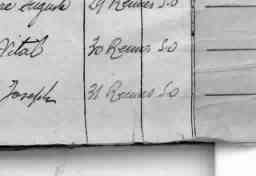 Auguste 29 Rennes S.O
Vital 30 Rennes S.O
Joseph 31 Rennes S.O